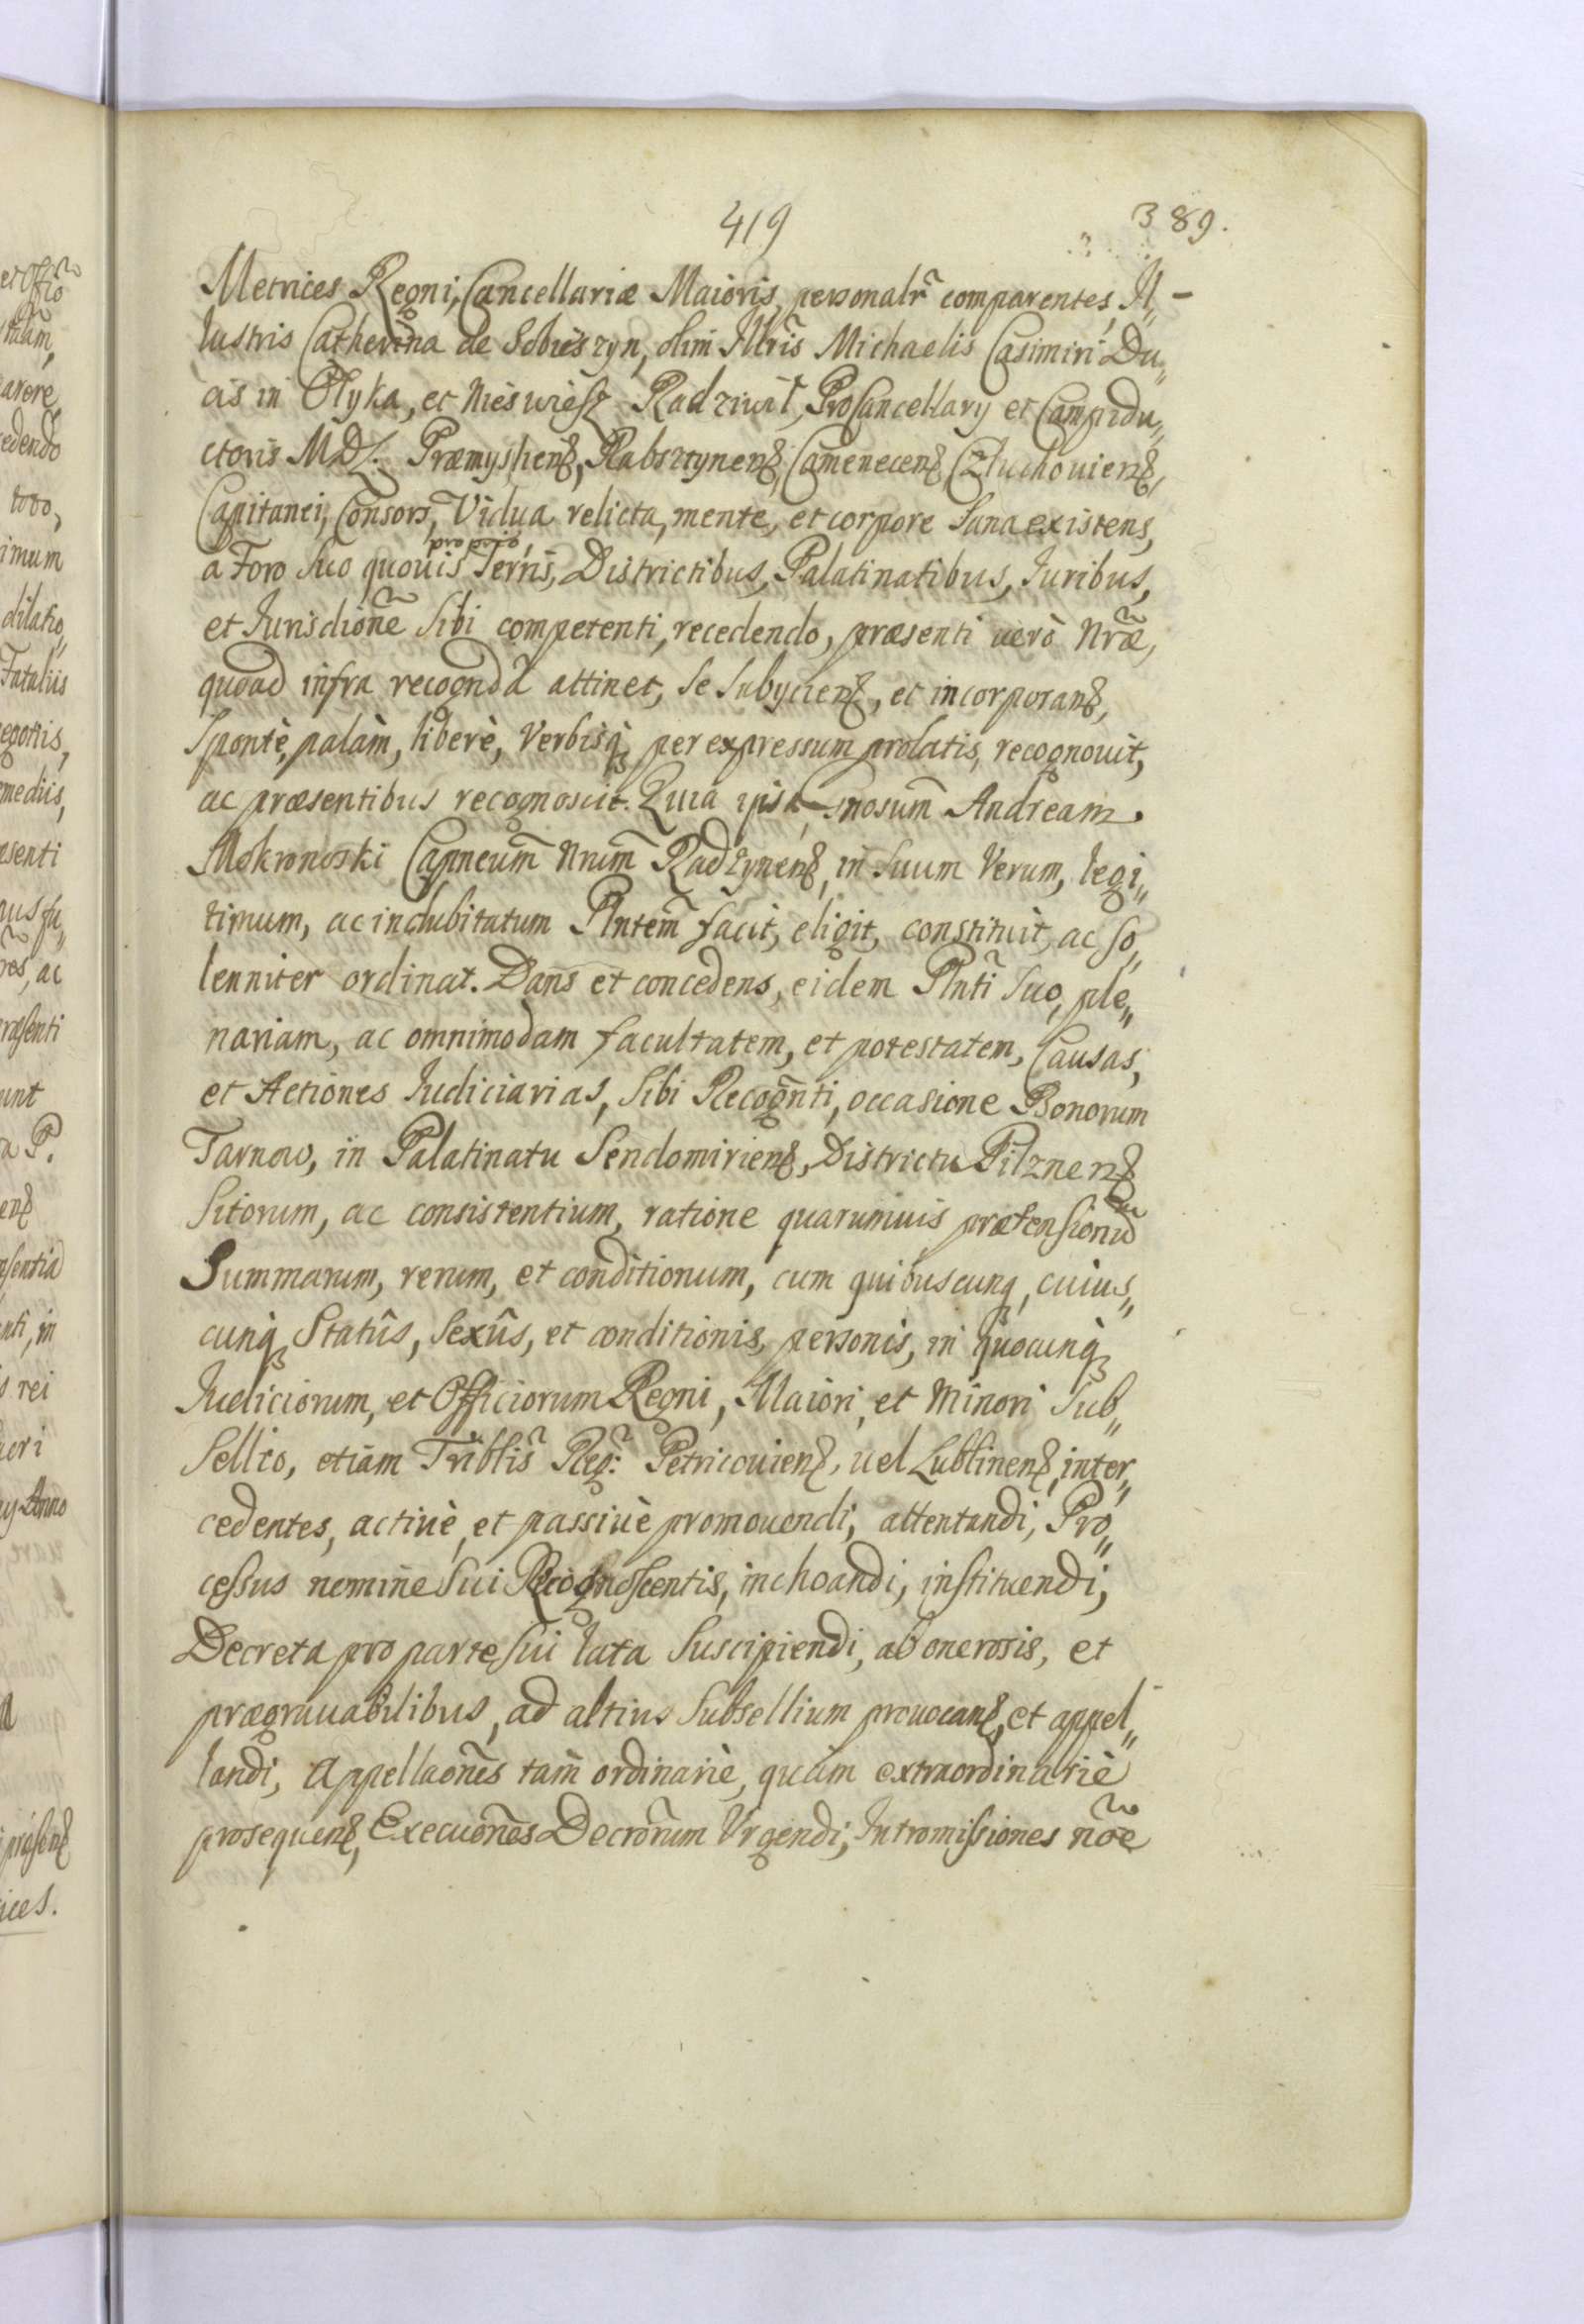 419
389.
Metrices Regni, Cancellariæ Maioris, personalr̃ comparentes, Il„
lustris Catherina de Sobieszyn, olim Illr̃is Michaelis Casimiri Du„
cis in Olyka, et Nieswiesz Radziwił, ProCancellarij et Campidu„
ctoris MDL. Præmyslienß, Rabsztynenß, Camenecenß Człuchovienß,
Capitanei, Consors, Vidua relicta, mente, et corpore sana existens,
a Foro suo quovis Terris, Districtibus, Palatinatibus, Iuribus,
et Iurisdiõne sibi competenti, recedendo, præsenti verò Nr̃æ,
quoad infra recogndã attinet, se subyciens, et incorporanß,
Spontè, palàm, liberè, Verbisq; per expressum prolatis, recognovit,
ac præsentibus recognoscit. Quia ipsa Gnosum̃ Andream
Mokronoski Capneum̃ Nrum̃ Radzynenß, in suum Verum, legi„
timum, ac indubitatum Plntem̃ facit, eligit, constituit, ac so„
lenniter ordinat. Dans et concedens, eidem Plnti suo, ple„
nariam, ac omnimodam facultatem, et potestatem, Causas,
et Actiones Iudiciarias, sibi Recogñti, occasione Bonorum
Tarnow, in Palatinatu Sendomirienß, Districtu Pilznenß
sitorum, ac consistentium, ratione quarumvis prætensionũ
Summarum, rerum, et conditionum, cum quibuscunq, cuius„
cunq; Statûs, sexûs, et conditionis, personis, in quocunq;
Iudiciorum, et Officiorum Regni, Maiori, et Minori Sub„
sellio, etiam Triblis̃ Reg: Petricovienß, vel Lublinenß, inter„
cedentes, activè, et passivè promovendi, attentandi, Pro„
cessus nomine sui Recognoscentis, inchoandi, instituendi,
Decreta pro parte sui lata suscipiendi, ab onerosis, et
prægravabilibus, ad altius Subsellium provocanß, et appel„
landi, Appellaões tam ordinariè, quàm extraordinariè
prosequenß, Execuões Decrorum̃ Urgendi, Intromissiones nõe